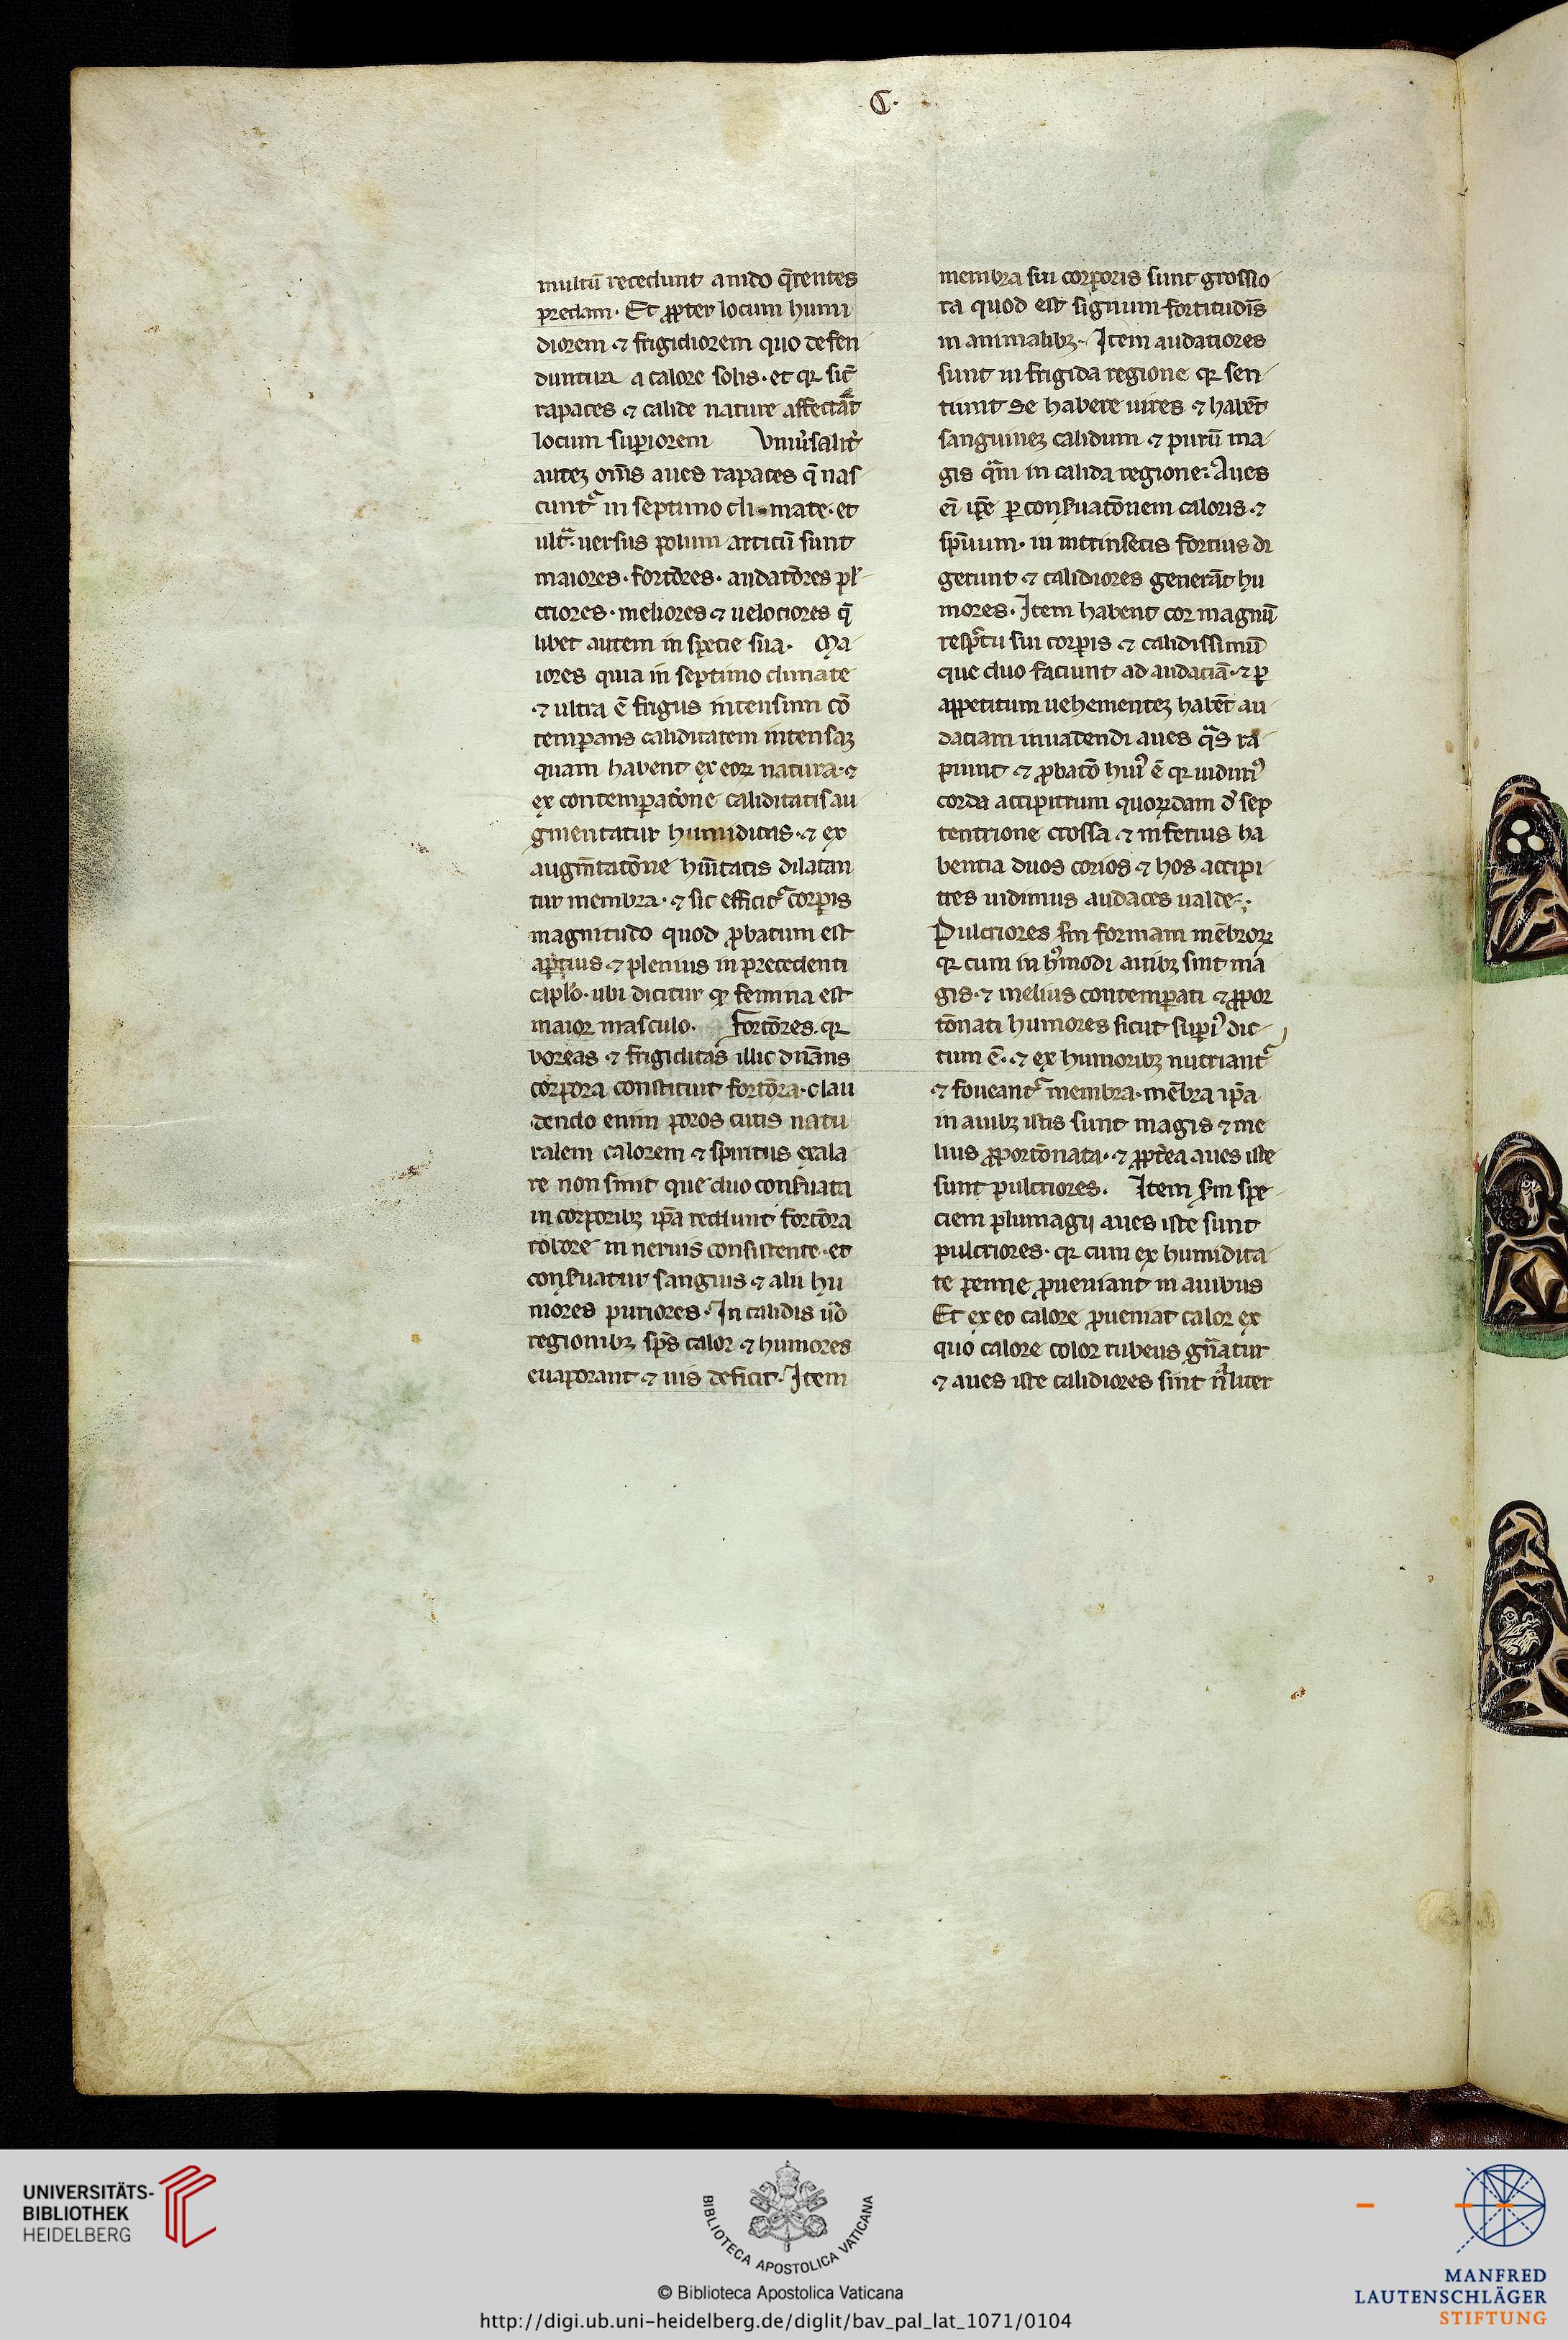 C·
multū recedunt a nido q̄rentes
predam· Et ꝓpter locum humi
diorem ⁊ frigidiorem quo defen
duntur a calore solis· et qꝛ sic̄
rapaces ⁊ calide nature affectāt
locum suꝑiorem Vniu̓salit̓
auteꝫ om̄s aues rapaces q̄ nas
cuntᷣ in septimo cli mate· et
ultᷓ· uersus polum articū sunt
maiores· fortōres· audatōres pl̓
criores· meliores ⁊ uelociores q̄
libet autem in specie sua· Ma
iores quia in septimo climate
⁊ ultra ē frigus intensum cō
temꝑans caliditatem intensaꝫ
quam habent ex eoꝝ natura· ⁊
ex contemꝑatōne caliditatis au
gmentatur humiditas· ⁊ ex
augm̄tatōne hūītatis dilatan
tur membra· ⁊ sic efficitᷣ corꝑis
magnitudo quod ꝓbatum est
aꝑtius ⁊ plenius in precedenti
cap̄lo· ubi dicitur qꝛ femina est
maior masculo· Fortōres· qꝛ
boreas ⁊ frigiditas illic dn̄ans
corpora constituit fortōra· clau
dendo enim poros cutis natu
ralem calorem ⁊ spiritus exala
re non sinit que duo conẜuata
in corporibꝫ ip̄a reddunt fortōra
robore in neruis consistente· et
conẜuatur sanguis ⁊ alii hu
mores puriores· In calidis ū̓o
regionibꝫ sp̄s calor ⁊ humores
euaporant ⁊ uis deficit· Item
membra sui corporis sunt grossio
ra quod est signum fortitudīs
in animalibꝫ· Item audatiores
sunt in frigida regione qꝛ sen
tiunt se habere uires ⁊ habēt
sanguineꝫ calidum ⁊ purū ma
gis qᷓm in calida regione: Aues
ei̅ ip̄e ꝑ conẜuatōnem caloris ⁊
sp̄uum· in intrinsecis fortius di
gerunt ⁊ calidiores generāt hu
mores· Item habent cor magnū
respc̄tu sui corꝑis ⁊ calidissimū
que duo faciunt ad audaciā· ⁊ ꝑ
appetitum uehementeꝫ habēt au
daciam inuadendi aues qᷓs ra
piunt ⁊ ꝓbatō huiꝰ ē qꝛ uidimꝰ
corda accipitrum quorūdam d̓ sep
tentrione crossa ⁊ inferius ha
bentia duos corios ⁊ hos accipi
tres uidimus audaces ualde·
Pulcriores ẜm formam mēbroꝝ
qꝛ cum in hꝰmodi auibꝫ sint ma
gis· ⁊ melius contemꝑati ⁊ ꝓpor
tōnati humores sicut suꝑiꝰ dic
tum ē· ⁊ ex humoribꝫ nutriantᷣ
⁊ foueantᷣ membra· mēbra ip̄a
in auibꝫ istis sunt magis ⁊ me
lius ꝓportōnata· ⁊ ꝓpt̓ea aues iste
sunt pulcriores· Item ẜm spe
ciem plumagii aues iste sunt
pulcriores· qꝛ cum ex humidita
te penne ꝓueniant in auibus
Et ex eo calore ꝓueniat calor ex
quo calore color rubeus gn̄atur
⁊ aues iste calidiores sint nᷓliter
UNIVERSITÄTS-
BIBLIOTHEK
HEIDELBERG
BIBLIOTECA APOSTOLICA VATICANA
© Biblioteca Apostolica Vaticana
http://digi.ub.uni-heidelberg.de/diglit/bav_pal_lat_1071/0104
MANFRED
LAUTENSCHLÄGER
STIFTUNG